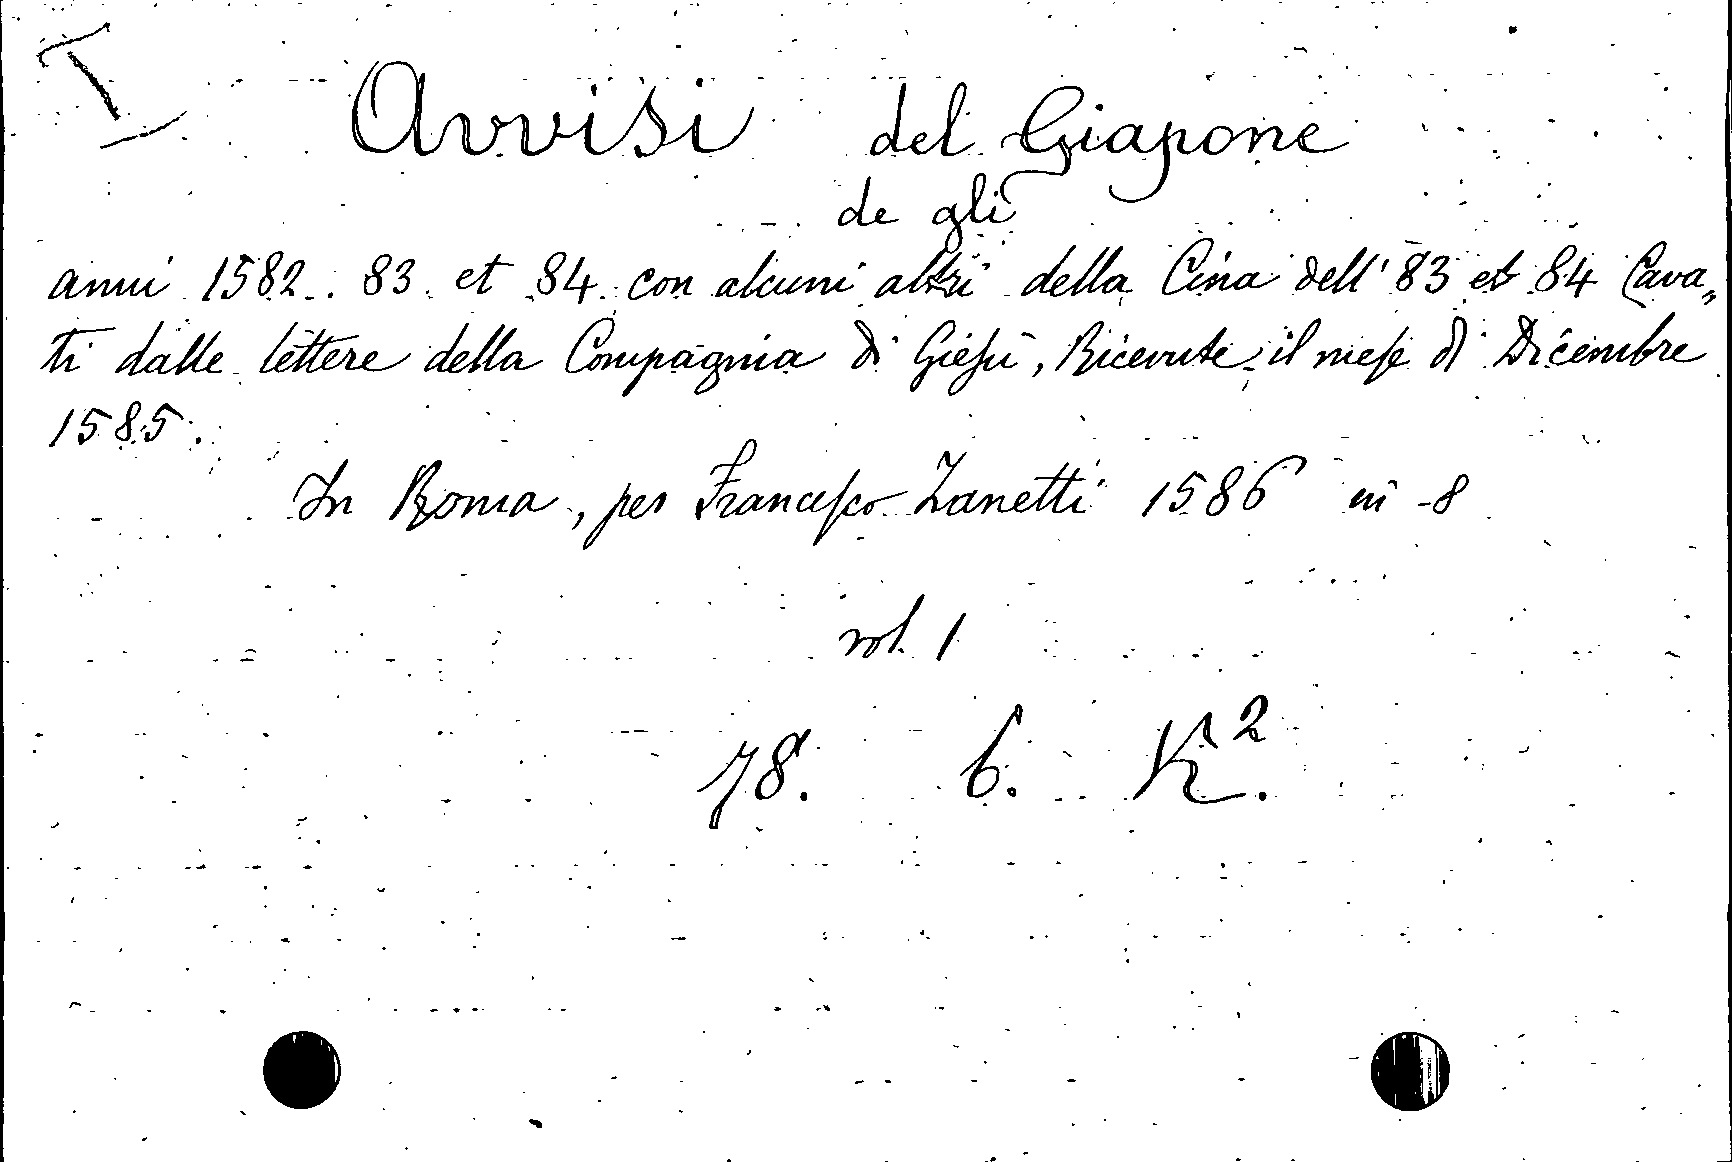 I
Avvisi del Giapone
de gli
anni 1582. 83. et 84. con alcuni altri della Cina dell' 83 et 84 Cava„
ti dalle lettere della Compagnia di Gieſù, Ricevute il meſe di Dicembre
1585.
In Roma, per Franceſco Zanetti 1586 in -8
vol. 1
78. 6. K².